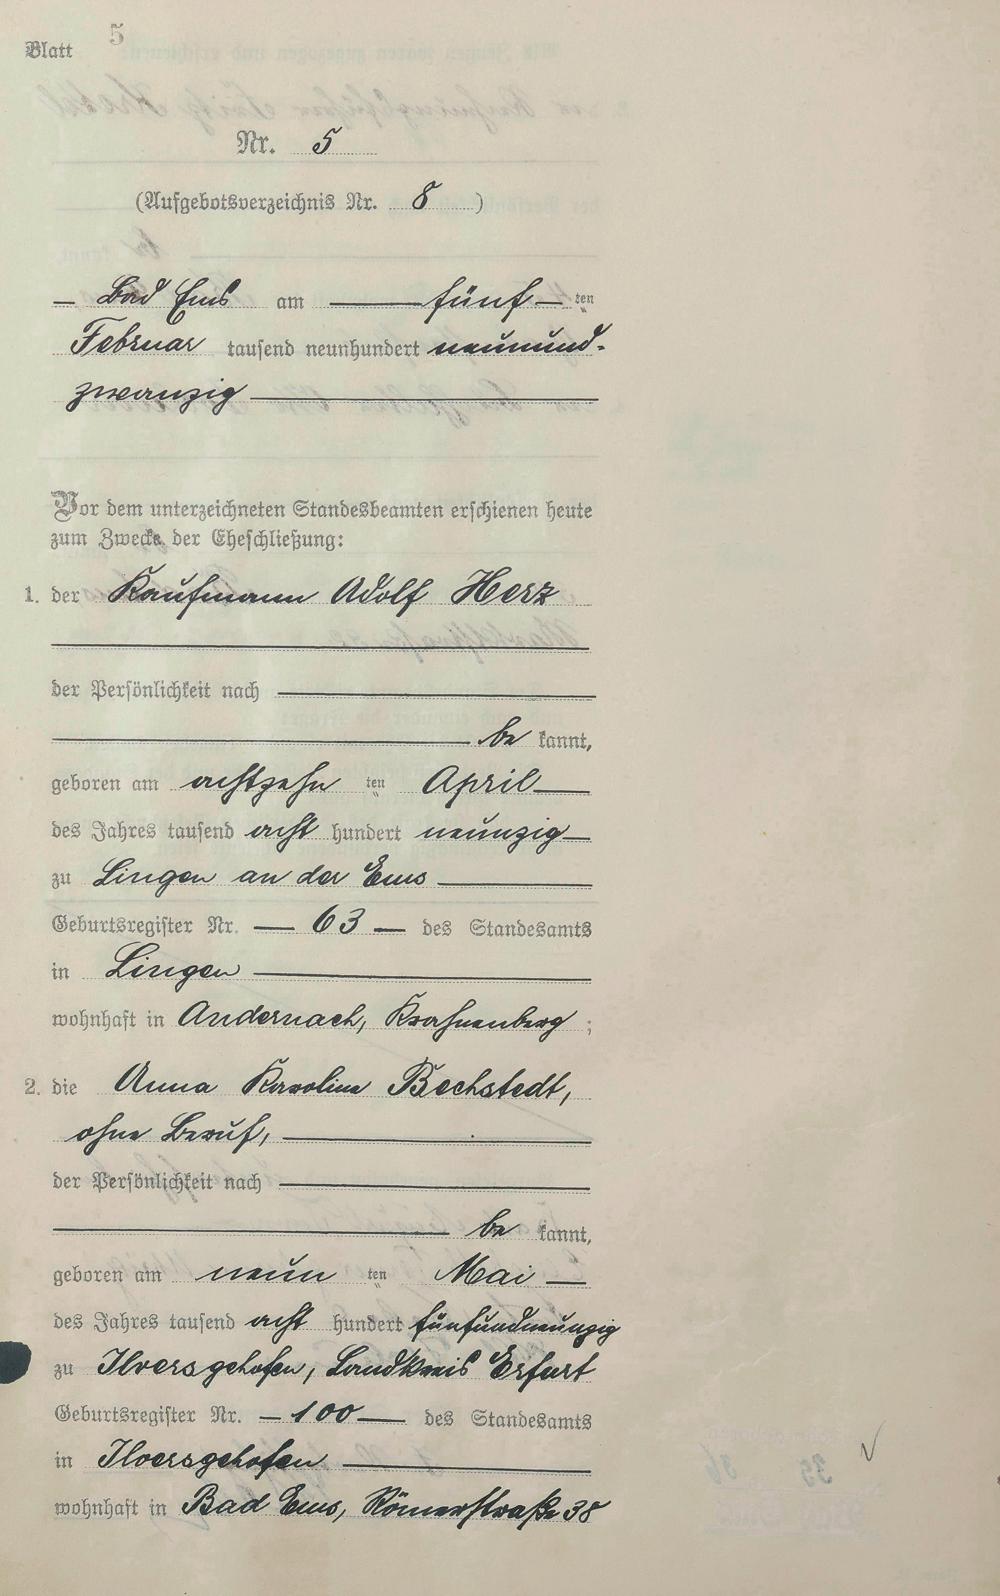 Blatt 5
Nr. 5
(Aufgebotsverzeichnis Nr. 8 )
— Bad Ems am — fünf — ten
Februar tausend neunhundert neunund-
zwanzig —
Vor dem unterzeichneten Standesbeamten erschienen heute
zum Zwecke der Eheschließung:
1. der Kaufmann Adolf Herz
der Persönlichkeit nach —
— be kannt,
geboren am achtzehn ten April —
des Jahres tausend acht hundert neunzig —
zu Lingen an der Ems —
Geburtsregister Nr. — 63 — des Standesamts
in Lingen —
wohnhaft in Andernach, Krahnenberg ;
2. die Anna Karolina Bechstedt,
ohne Beruf, —
der Persönlichkeit nach —
— be kannt,
geboren am neun ten Mai —
des Jahres tausend acht hundert fünfundneunzig
zu Ilversgehofen, Landkreis Erfurt
Geburtsregister Nr. — 100 — des Standesamts
in Ilversgehofen —
wohnhaft in Bad Ems, Römerstraße 38